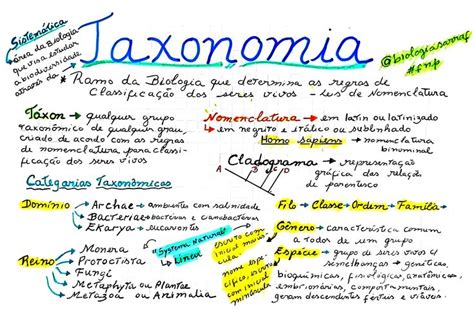 Sistemática
área da Biologia
que visa estudar
a biodiversidade
através da
Taxonomia
@biologiasarraf
#fnp
* Ramo da Biologia que determina as regras de
Classificação dos seres vivos - Leis de Nomenclatura
Táxon → qualquer grupo
taxonômico de qualquer grau,
criado de acordo com as regras
de nomenclatura para classi-
ficação dos seres vivos
Nomenclatura → em latim ou latinizado
→ em negrito e itálico ou sublinhado
Homo sapiens → nomenclatura
binominal
Cladograma → representação
gráfica das relações
de parentesco
A B C D
Categorias Taxonômicas
Domínio → Archae → ambientes com salinidade
→ Bacteriae → bactérias e cianobactérias
→ Eukarya → eucariontes
Reino → Monera
→ Protoctista
→ Fungi
→ Metaphyta ou Plantae
→ Metazoa ou Animalia
"Systema Naturae"
Lineu
escrito com
inicial maiús
cula
nome espe-
cífico, escrito
com inicial
minúscula
Filo → Classe → Ordem → Família →
Gênero → característica comum
a todos de um grupo
Espécie → grupo de seres vivos c/
semelhanças → genéticas,
bioquímicas, fisiológicas, anatômicas,
embrionárias, comportamentais,
geram descendentes férteis e viáveis.